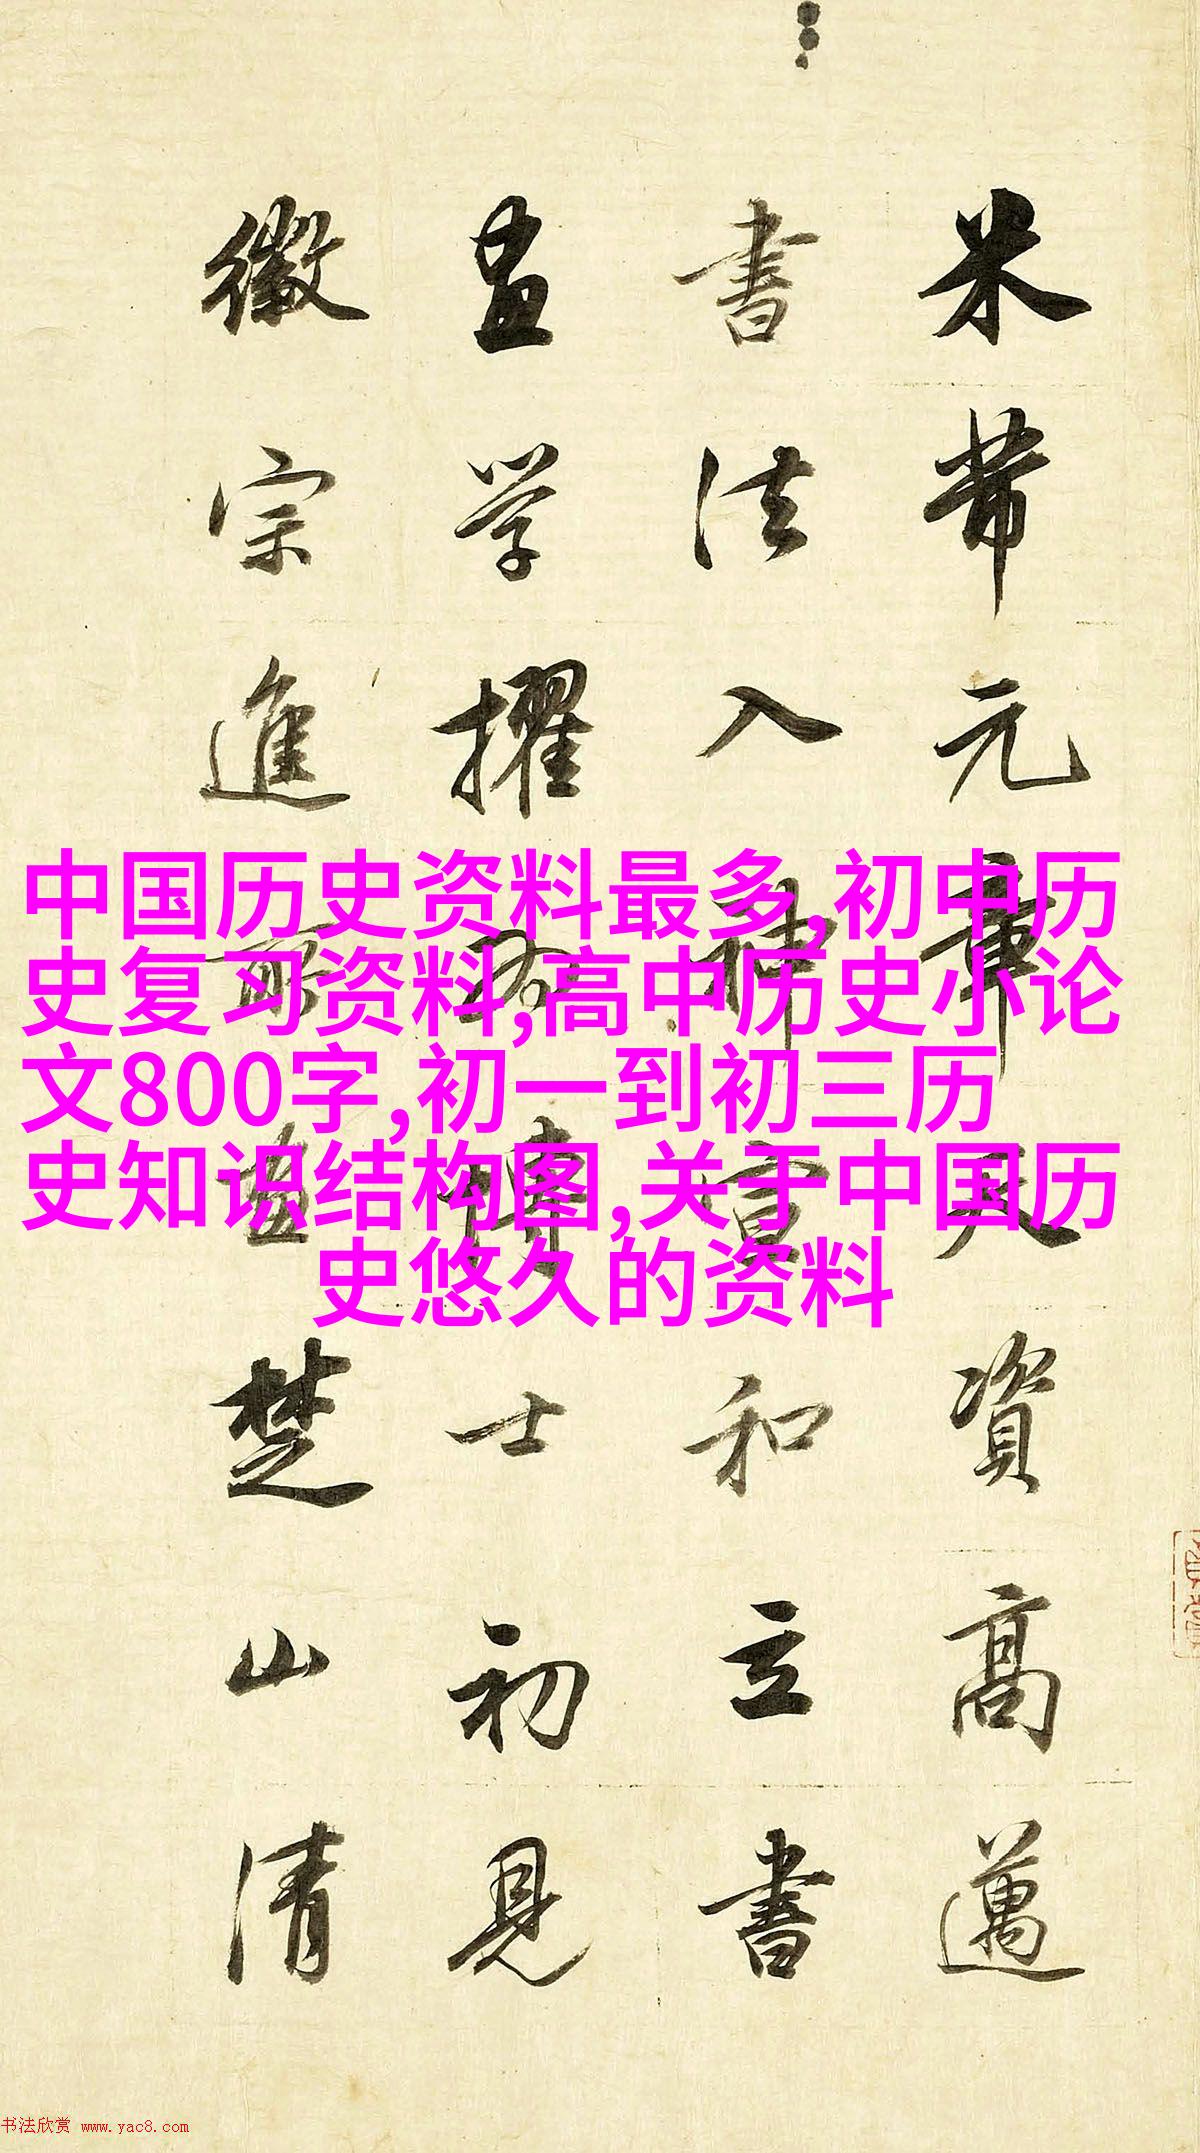 米芾元章天資高邁
書法入神宣和立書
畫學擢為博士初見
徽宗進所畫楚山清
中国历史资料最多,初中历
史复习资料,高中历史小论
文800字,初一到初三历
史知识结构图,关于中国历
史悠久的资料
书法欣赏 www.yac8.com